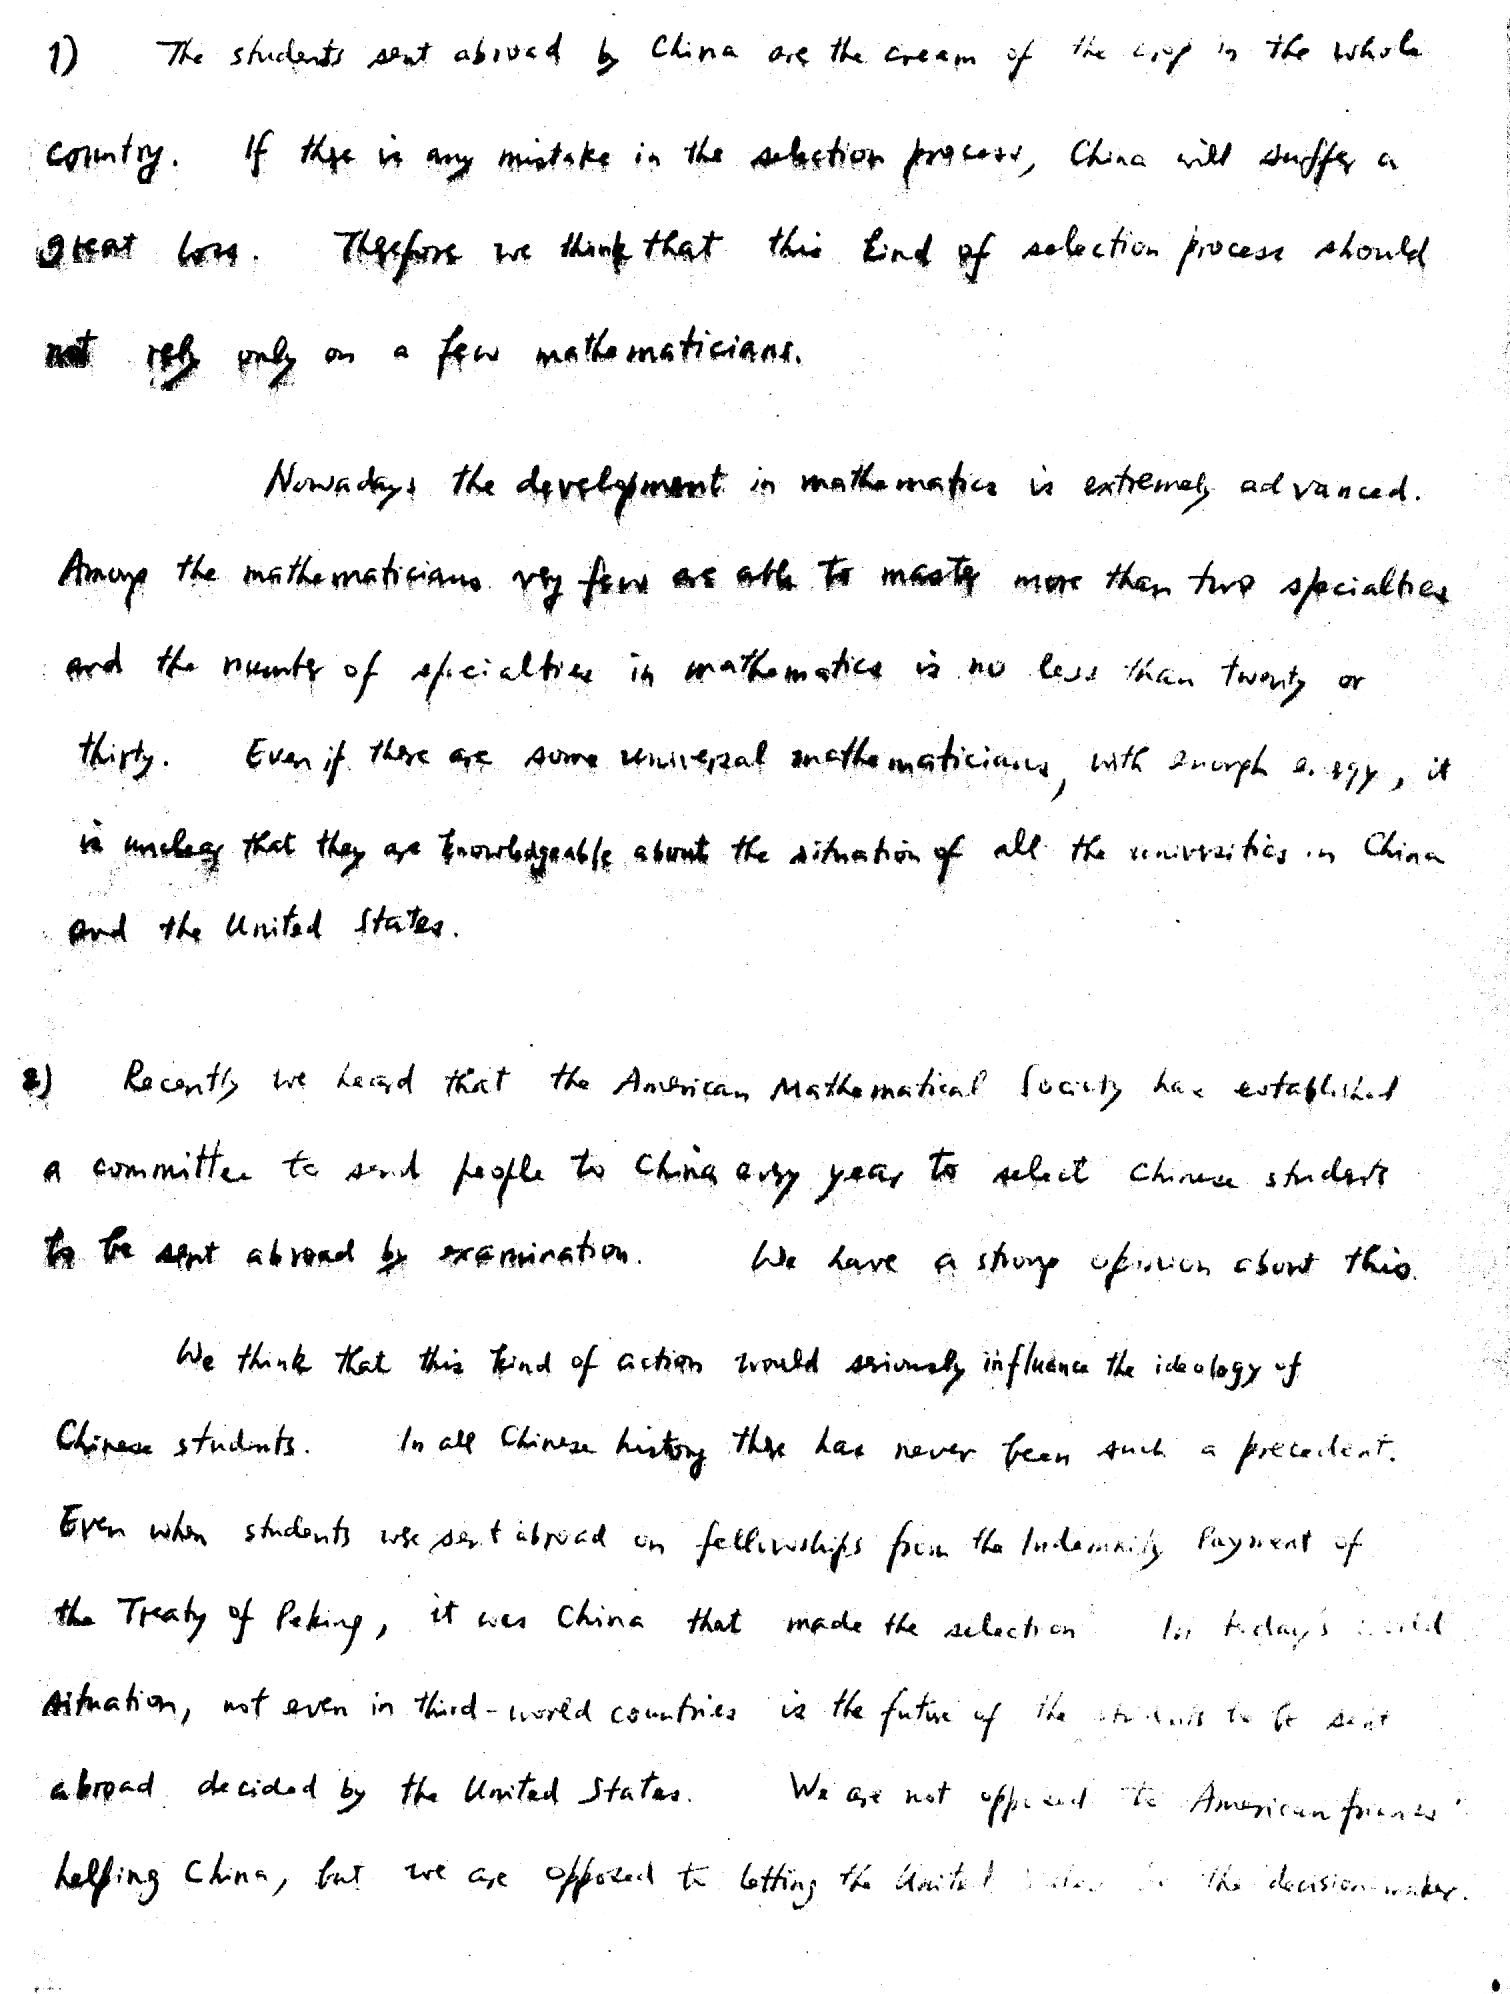 1) The students sent abroad by China are the cream of the crop in the whole
country. If there is any mistake in the selection process, China will suffer a
great loss. Therefore we think that this kind of selection process should
not rely only on a few mathematicians.
Nowadays the development in mathematics is extremely advanced.
Among the mathematicians very few are able to master more than two specialties
and the number of specialties in mathematics is no less than twenty or
thirty. Even if there are some universal mathematicians, with enough energy, it
is unclear that they are knowledgeable about the situation of all the universities in China
and the United States.
2) Recently we heard that the American Mathematical Society has established
a committee to send people to China every year to select Chinese students
to be sent abroad by examination. We have a strong opinion about this.
We think that this kind of action would seriously influence the ideology of
Chinese students. In all Chinese history there has never been such a precedent.
Even when students were sent abroad on fellowships from the Indemnity Payment of
the Treaty of Peking, it was China that made the selection In today's world
situation, not even in third-world countries is the future of the students to be sent
abroad decided by the United States. We are not opposed to American friends'
helping China, but we are opposed to letting the United States be the decision-maker.